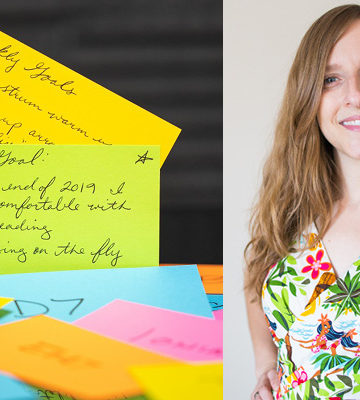 kly Goals
strum warm u
up arra
Goal:
end of 2019 I
comfortable with
eading
ing on the fly
D7